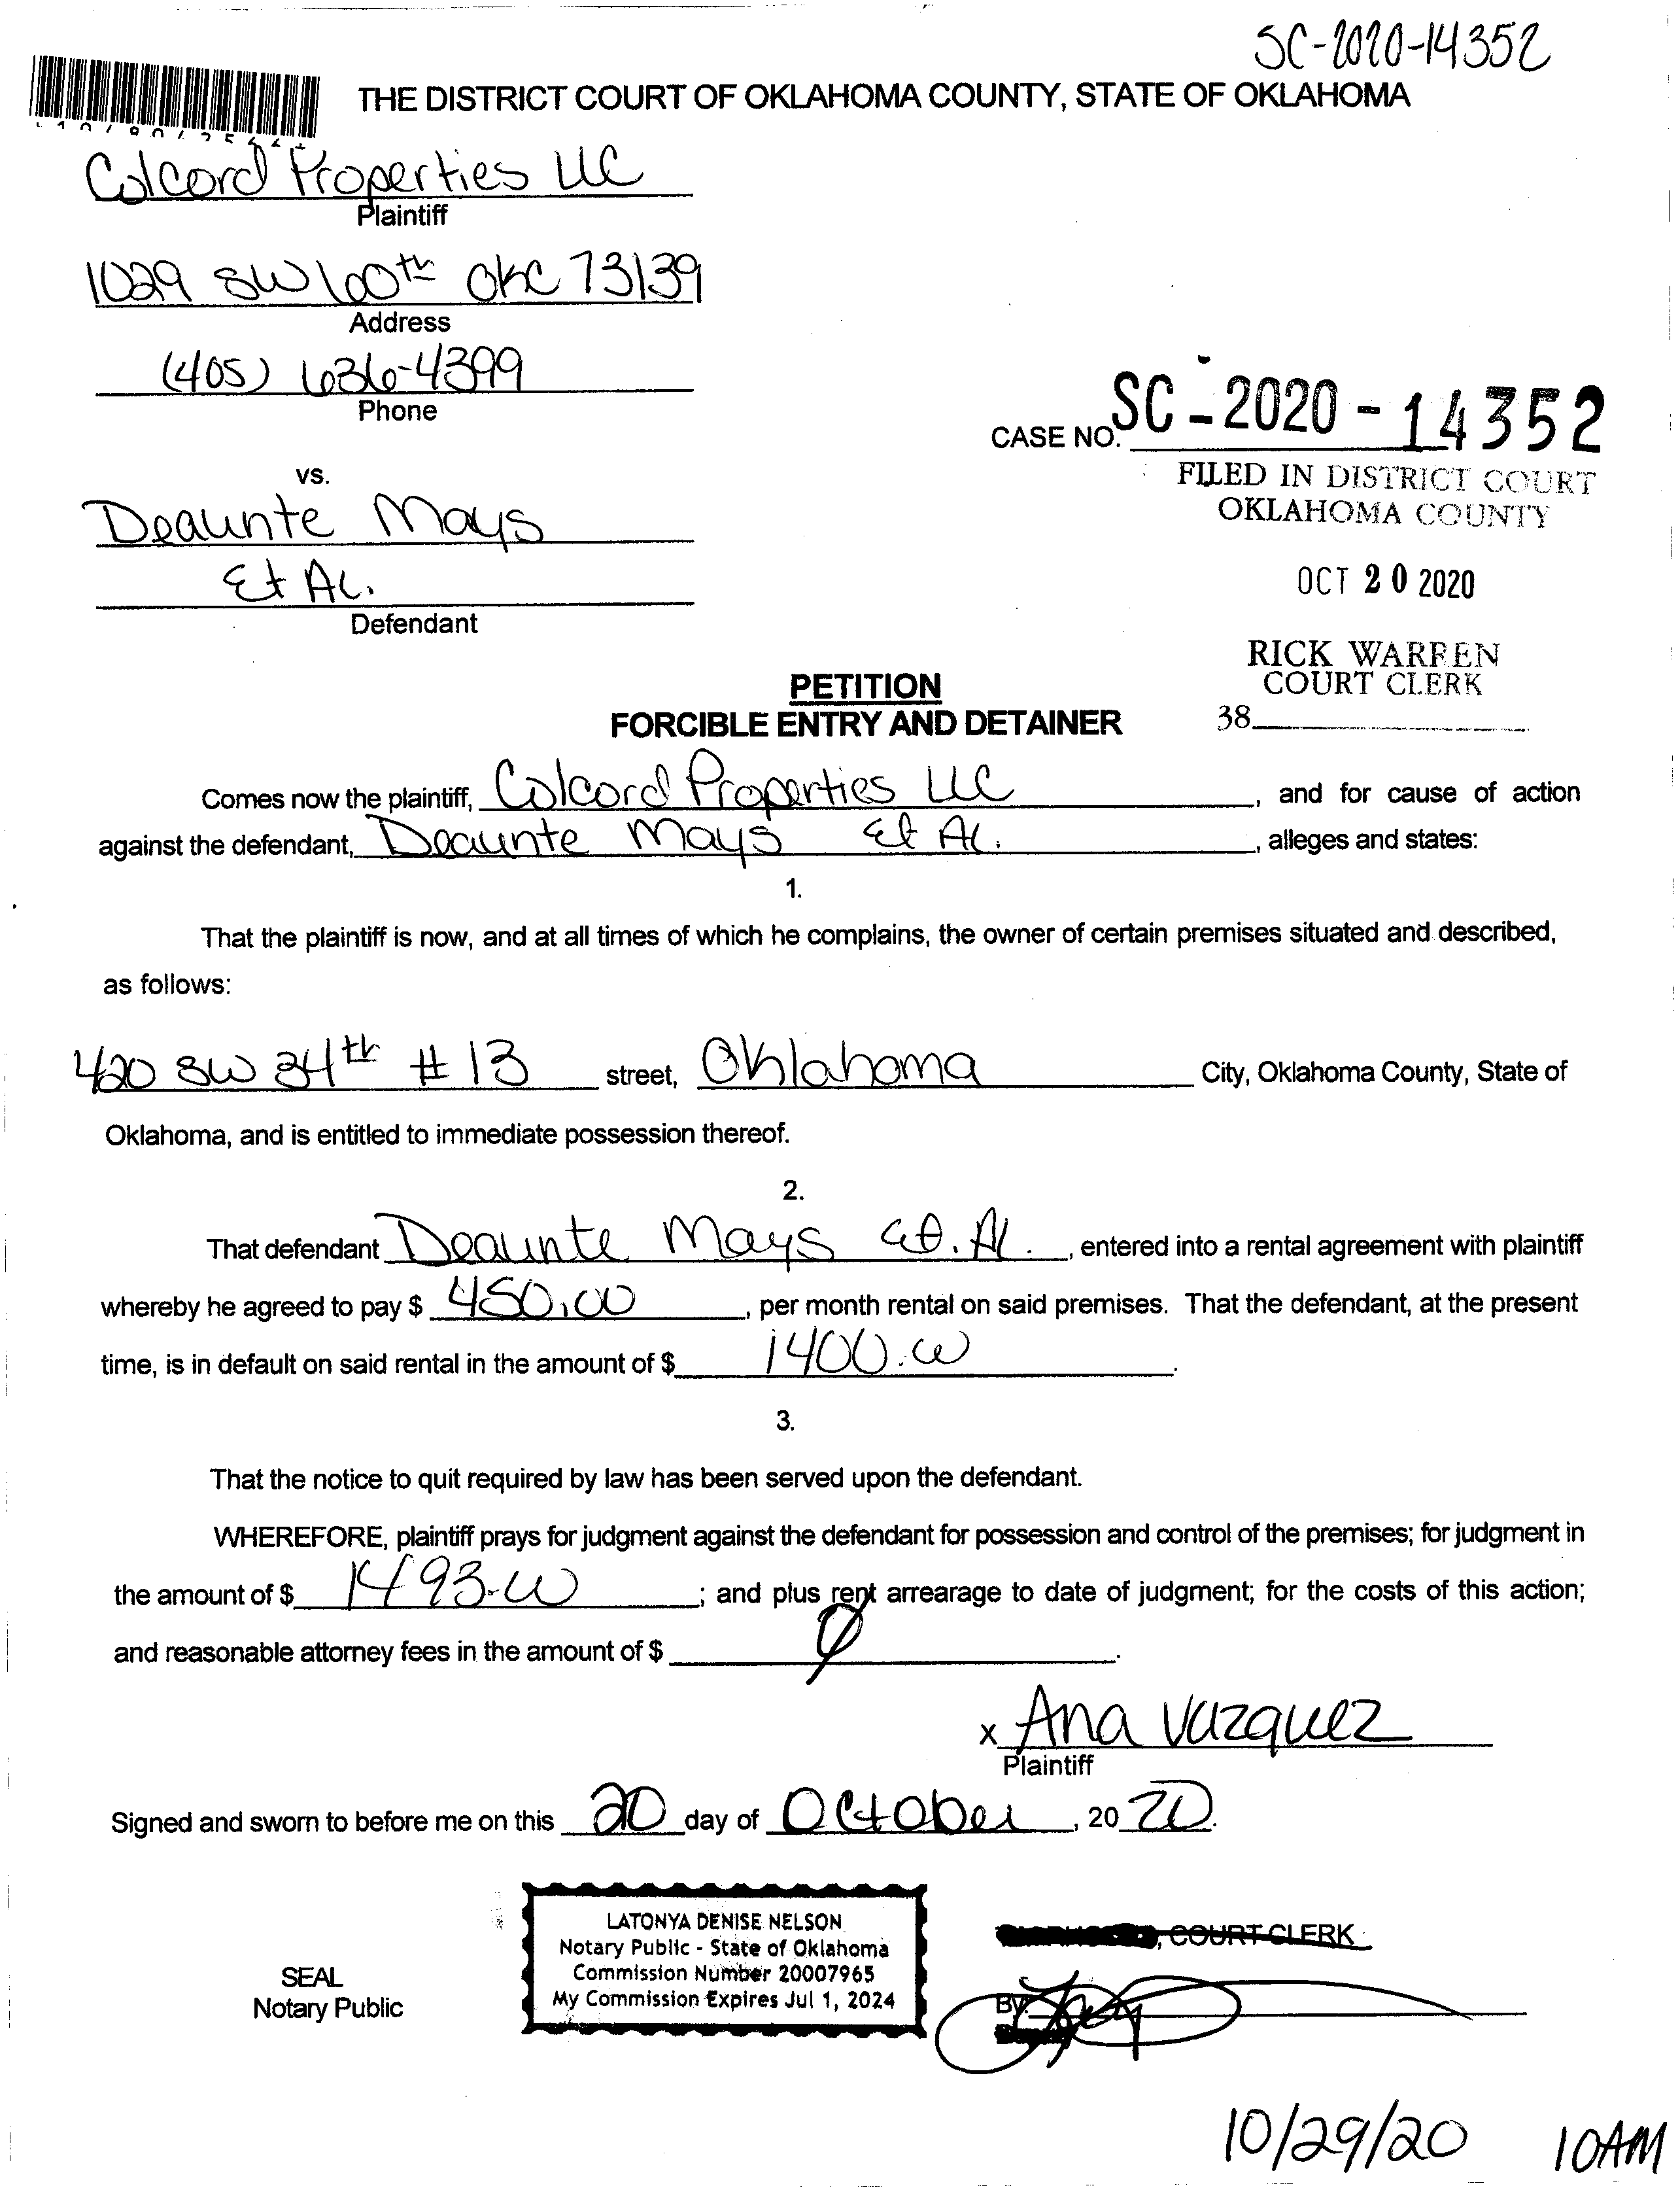 SC-2020-14352
THE DISTRICT COURT OF OKLAHOMA COUNTY, STATE OF OKLAHOMA
Colcord Properties LLC
Plaintiff
1029 SW 60th OKC 73139
Address
(405) 636-4399
Phone
CASE NO. SC-2020-14352
vs.
FILED IN DISTRICT COURT
OKLAHOMA COUNTY
Deaunte Mays
Et Al.
Defendant
OCT 20 2020
RICK WARREN
COURT CLERK
38
PETITION
FORCIBLE ENTRY AND DETAINER
Comes now the plaintiff, Colcord Properties LLC, and for cause of action
against the defendant, Deaunte Mays Et Al., alleges and states:
1.
That the plaintiff is now, and at all times of which he complains, the owner of certain premises situated and described,
as follows:
420 SW 34th # 13 street, Oklahoma City, Oklahoma County, State of
Oklahoma, and is entitled to immediate possession thereof.
2.
That defendant Deaunte Mays Et. Al., entered into a rental agreement with plaintiff
whereby he agreed to pay $ 450.00, per month rental on said premises. That the defendant, at the present
time, is in default on said rental in the amount of $ 1400.00.
3.
That the notice to quit required by law has been served upon the defendant.
WHEREFORE, plaintiff prays for judgment against the defendant for possession and control of the premises; for judgment in
the amount of $ 1493.00; and plus rent arrearage to date of judgment; for the costs of this action;
and reasonable attorney fees in the amount of $ 0.
x Ana Vazquez
Plaintiff
Signed and sworn to before me on this 20 day of October, 2020.
LATONYA DENISE NELSON
Notary Public - State of Oklahoma
Commission Number 20007965
My Commission Expires Jul 1, 2024
SEAL
Notary Public
, COURT CLERK
By:
10/29/20 10AM